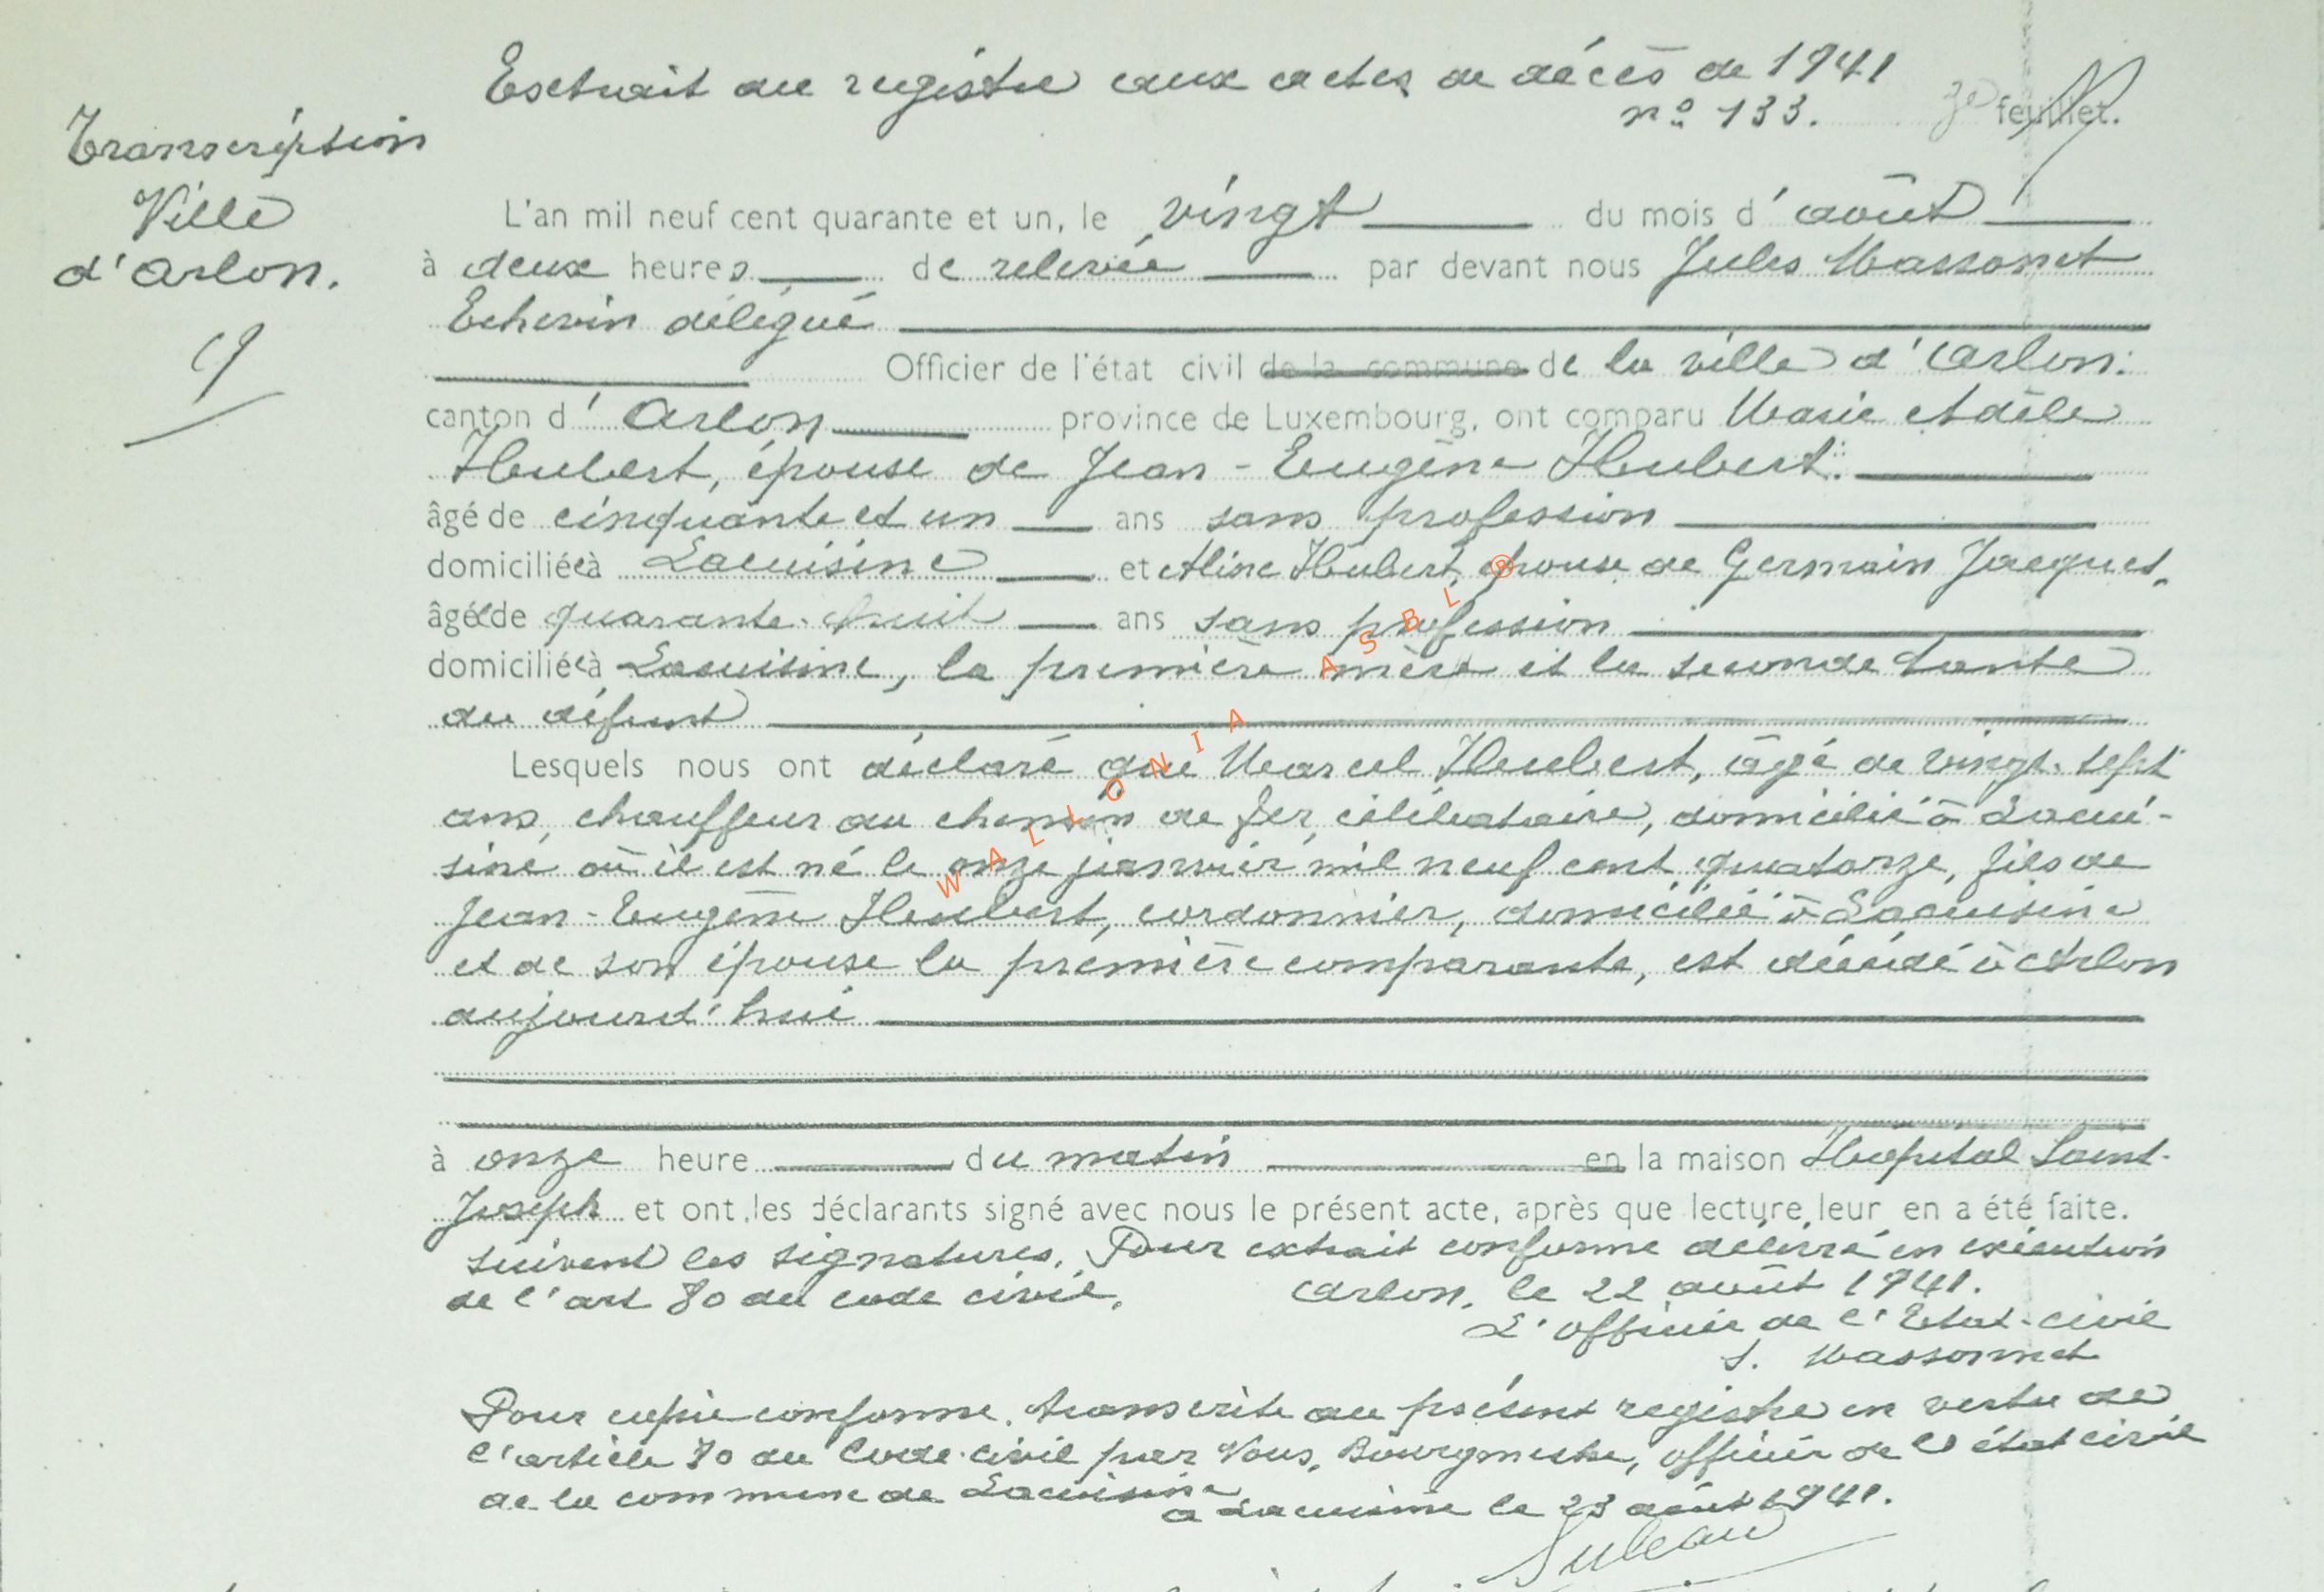 Extrait du registre aux actes de décès de 1941
n° 133.
feuillet.
Transcription
Ville
d'Arlon.
9
L'an mil neuf cent quarante et un, le vingt du mois d'août
à deux heures de relevée par devant nous Jules Massonet
Echevin délégué
Officier de l'état civil de la commune de la ville d'Arlon.
canton d'Arlon province de Luxembourg, ont comparu Marie Adèle
Hubert, épouse de Jean-Eugène Hubert.
âgé de cinquante et un ans sans profession
domiciliée à Lacuisine et Aline Hubert, épouse de Germain Jacques,
âgée de quarante-huit ans sans profession
domiciliée à Lacuisine, la première mère et la seconde tante
du défunt
Lesquels nous ont déclaré que Marcel Hubert, âgé de vingt-sept
ans, chauffeur au chemin de fer, célibataire, domicilié à Lacui-
sine où il est né le onze janvier mil neuf cent quatorze, fils de
Jean-Eugène Hubert, cordonnier, domicilié à Lacuisine
et de son épouse la première comparante, est décédé à Arlon
aujourd'hui
à onze heure du matin en la maison Hôpital Saint-
Joseph et ont les déclarants signé avec nous le présent acte, après que lecture leur en a été faite.
suivent les signatures. Pour extrait conforme délivré en exécution
de l'art 80 du code civil. Arlon, le 22 août 1941.
L'officier de l'Etat-civil
J. Massonnet
Pour copie conforme, transcrite au présent registre en vertu de
l'article 80 du Code civil par Nous, Bourgmestre, officier de l'état civil
de la commune de Lacuisine
à Lacuisine le 23 août 1941.
WALLONIA ASBL ®